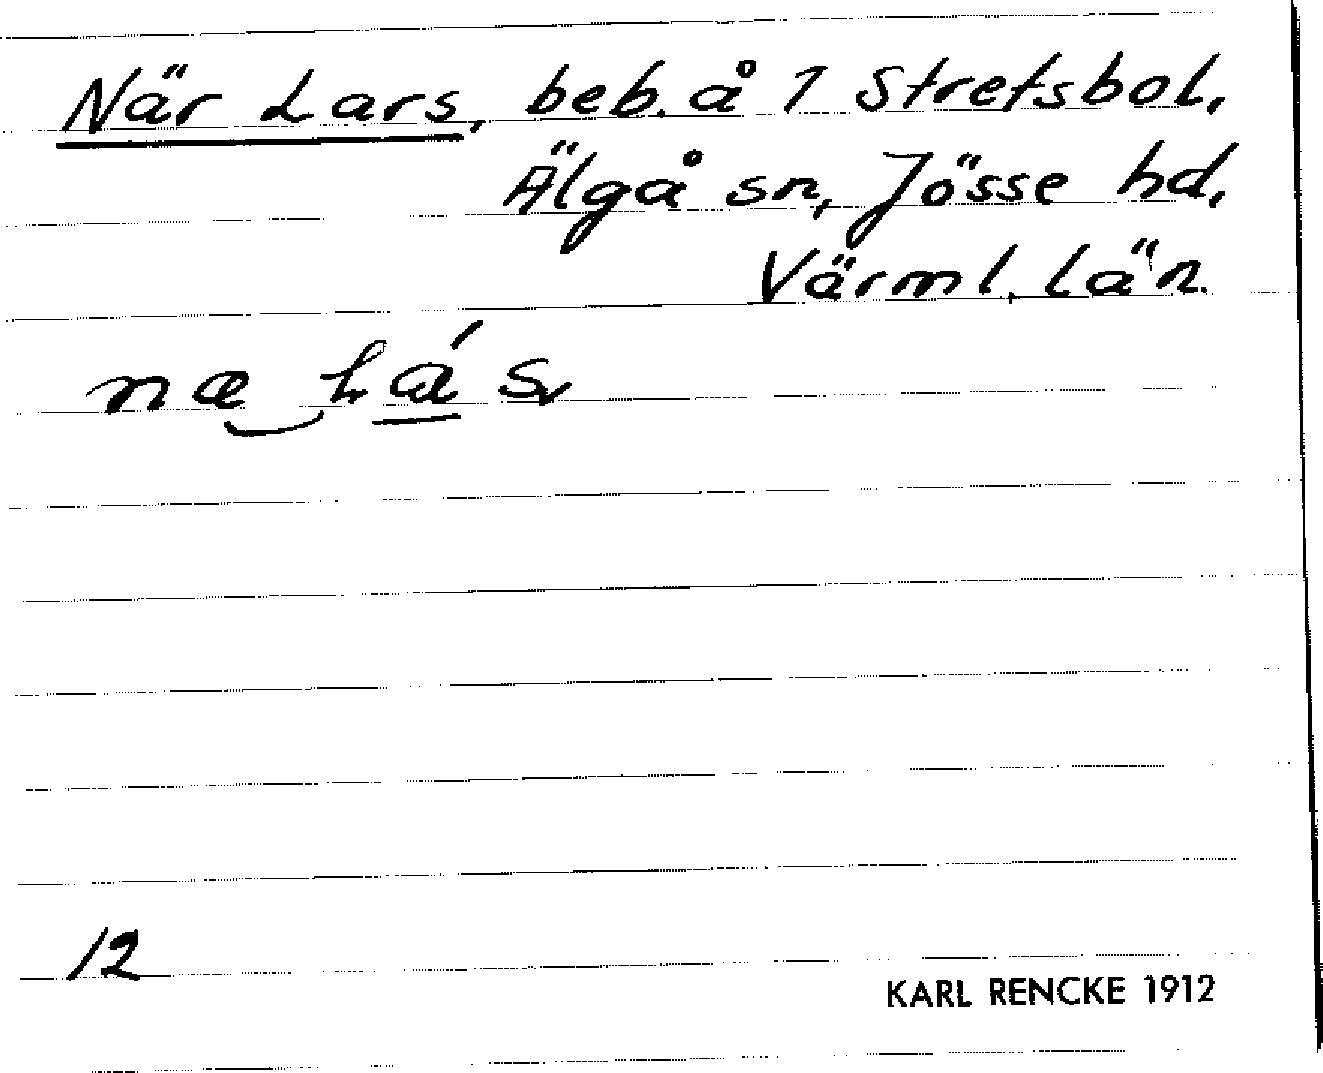 När Lars, beb. å 1 Stretsbol,
Älgå sn, Jösse hd,
Värml. län.
12
KARL RENCKE 1912